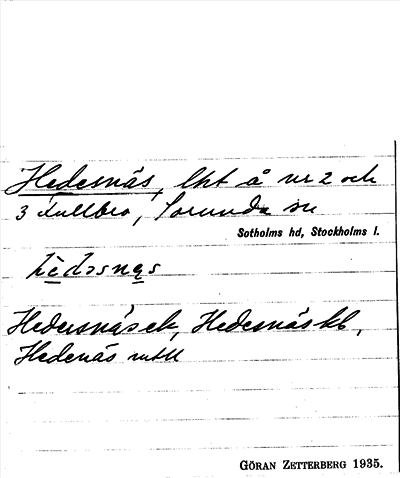 Hedesnäs, lht å nr 2 och
3 Fullbro, Sorunda sn
Sotholms hd, Stockholms l.
hedəsnęs
Hedersnäs ek, Hedesnäs kb,
Hedenäs mtll
GÖRAN ZETTERBERG 1935.